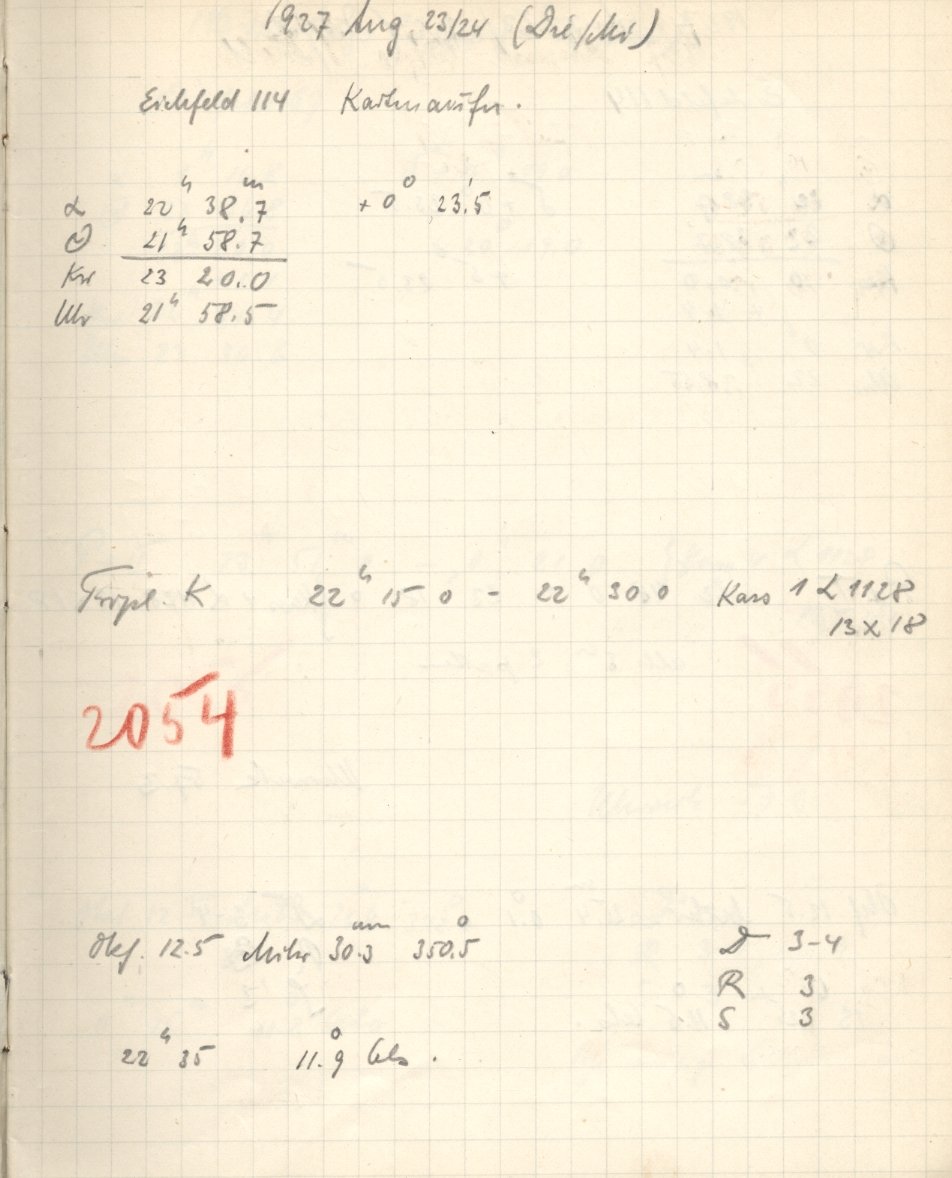 1927 Aug 23/24 (Die/Mi)
Eichfeld 114 Kartenaufn.
α 22h 38.m7 + 0° 23.'5
21h 58.7
Kr 23 20.0
Uhr 21h 58.5
Tripl. K 22h 15 0 - 22h 30 0 Kass 1 α 1128
13 x 18
2054
Okf. 12.5 Mikr 30.3 mm 350.°5
D 3-4
R 3
S 3
22h 35 11.°9 Cels.